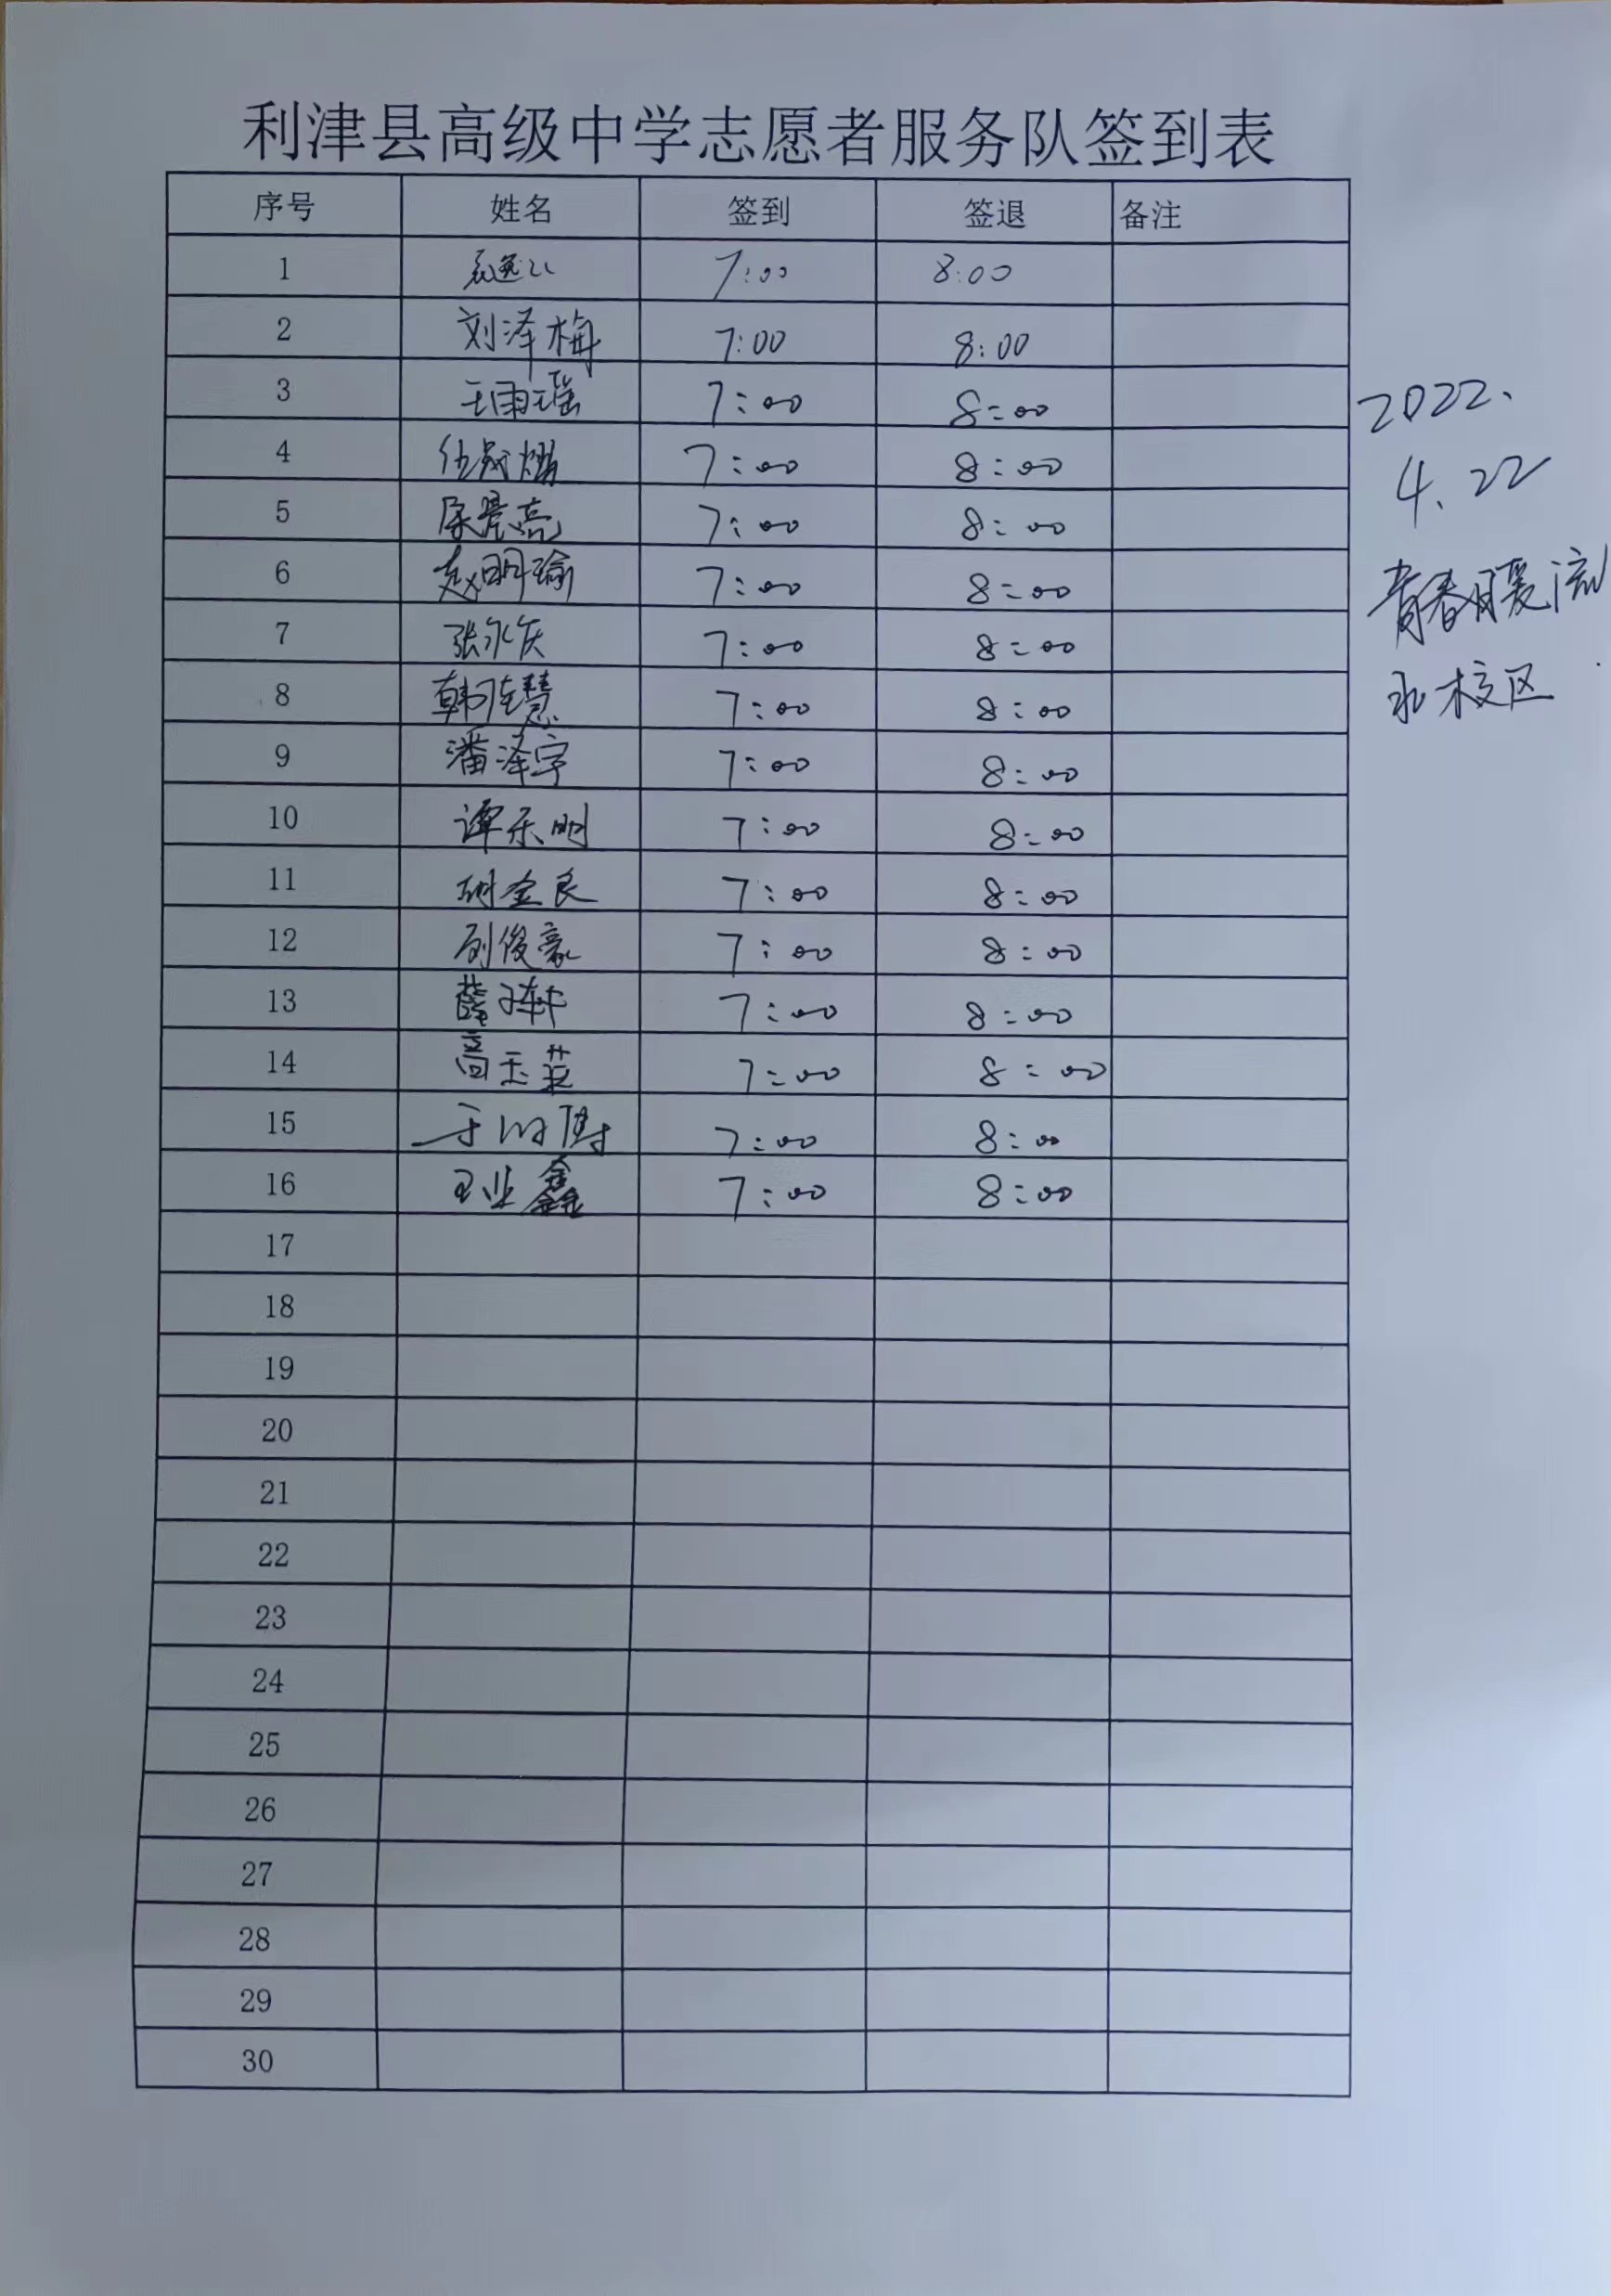 利津县高级中学志愿者服务队签到表
序号 姓名 签到 签退 备注
1 7:00 8:00
2 刘泽梅 7:00 8:00
3 王雨瑶 7:00 8:00
4 7:00 8:00
5 7:00 8:00
6 赵明瑜 7:00 8:00
7 张永庆 7:00 8:00
8 韩佳慧 7:00 8:00
9 潘泽宇 7:00 8:00
10 谭乐明 7:00 8:00
11 胡金良 7:00 8:00
12 刘俊豪 7:00 8:00
13 薛子轩 7:00 8:00
14 高玉英 7:00 8:00
15 7:00 8:00
16 王业鑫 7:00 8:00
17
18
19
20
21
22
23
24
25
26
27
28
29
30
2022.
4.22
青春暖流
永校区